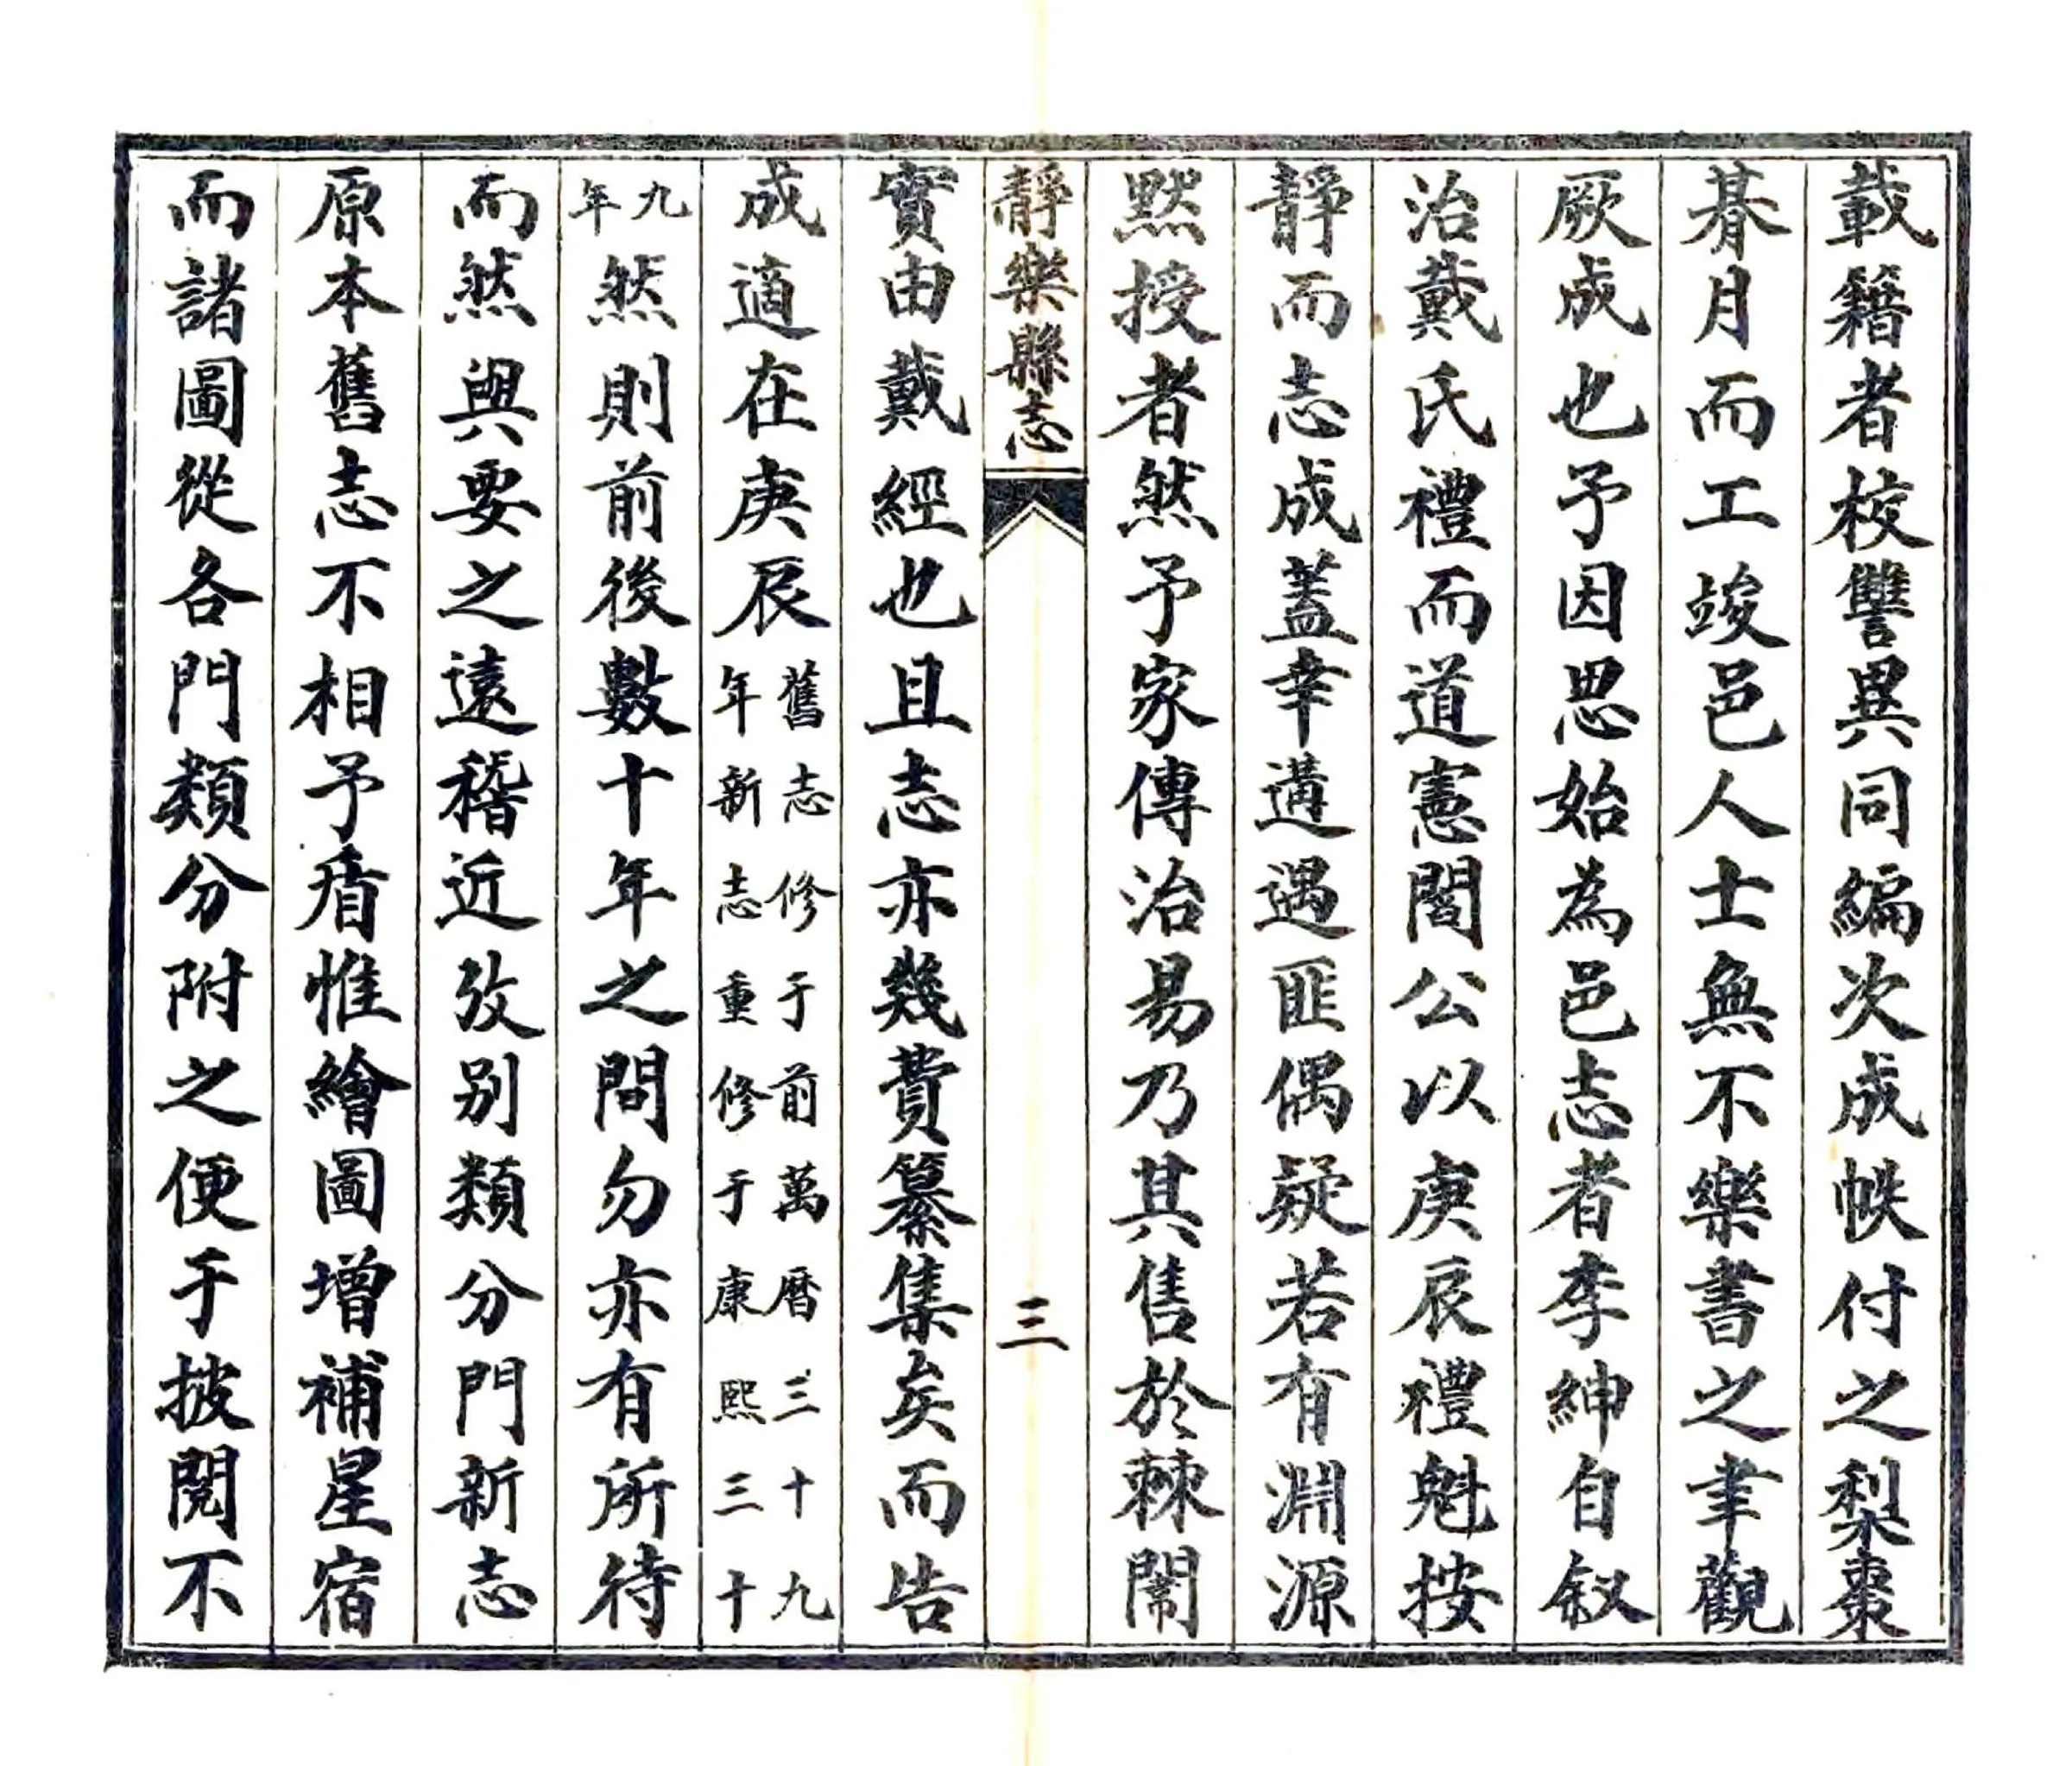 載籍者校讐異同編次成帙付之梨棗
朞月而工竣邑人士無不樂書之聿觀
厥成也予因思始為邑志者李紳自叙
治戴氏禮而道憲閻公以庚辰禮魁按
靜而志成蓋幸遘遇匪偶疑若有淵源
黙授者然予家傳治易乃其售於棘闈
靜樂縣志
三
實由戴經也且志亦幾費纂集矣而告
成適在庚辰舊志修于前萬暦三十九
年新志重修于康熙三十
九年然則前後數十年之間勿亦有所待
而然與要之遠稽近攷别類分門新志
原本舊志不相予盾惟繪圖增補星宿
而諸圖從各門類分附之便于披閱不